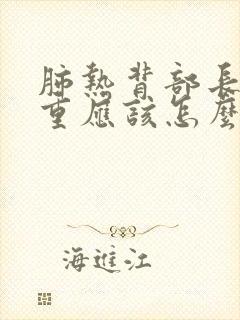 肺熱背部長
重應該怎麼
海進江